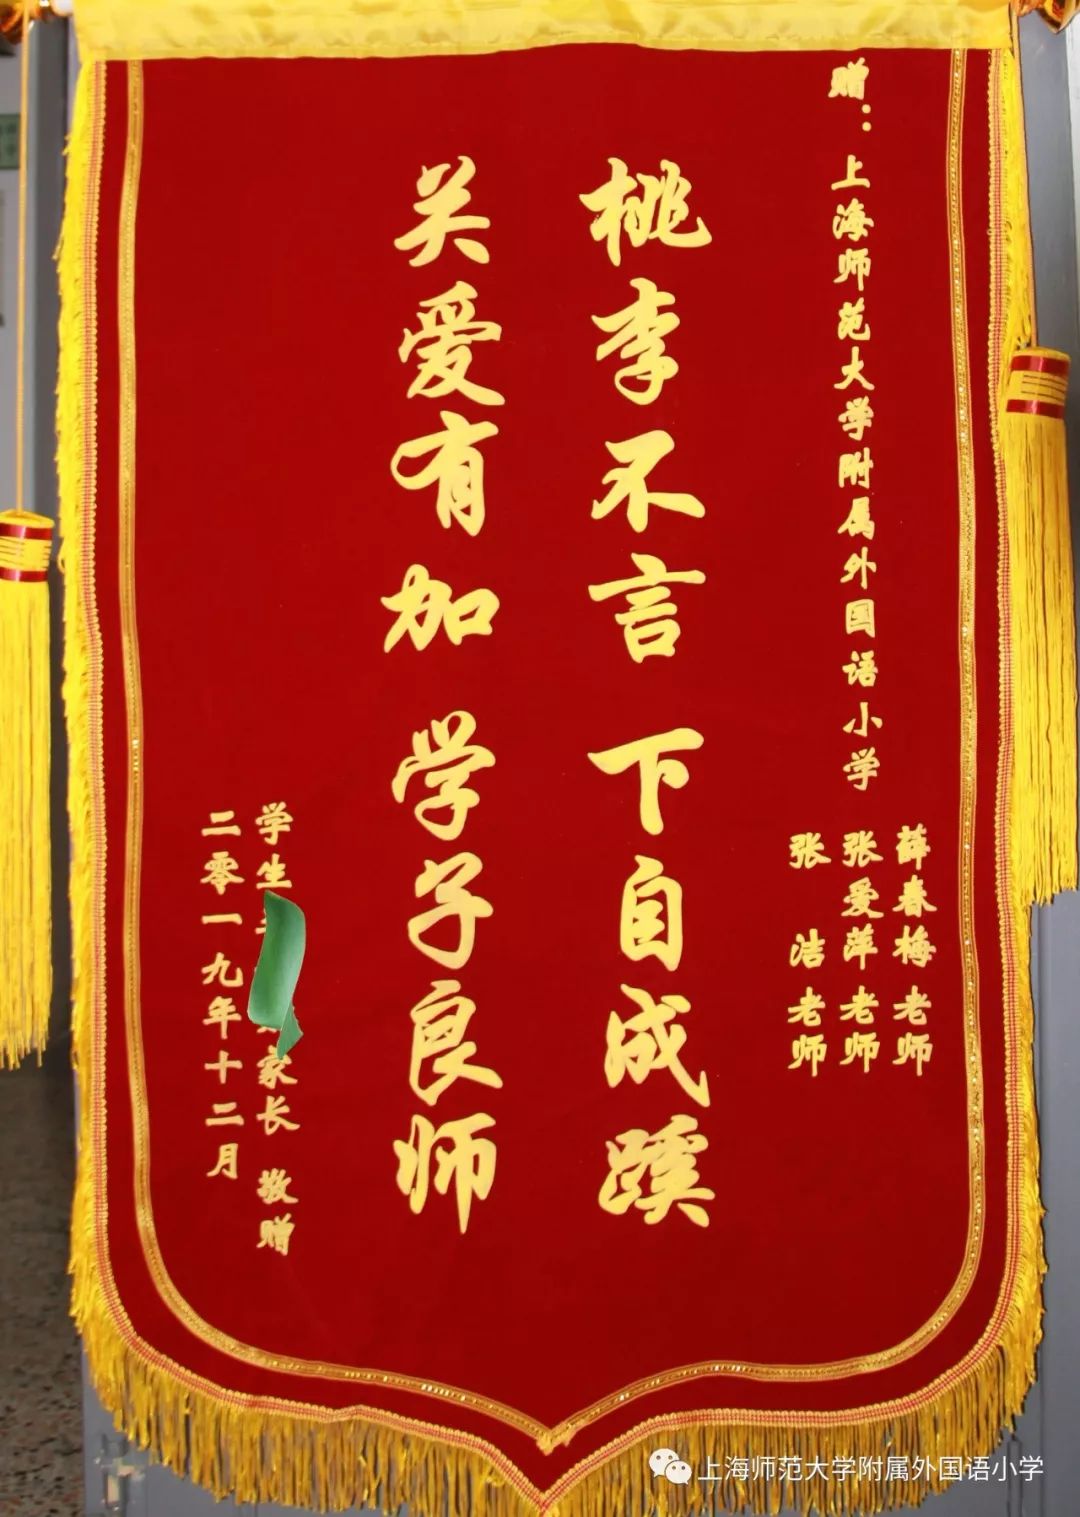 赠：上海师范大学附属外国语小学
薛春梅老师
张爱萍老师
张洁老师
桃李不言下自成蹊
关爱有加学子良师
学生
家长 敬赠
二零一九年十二月
上海师范大学附属外国语小学